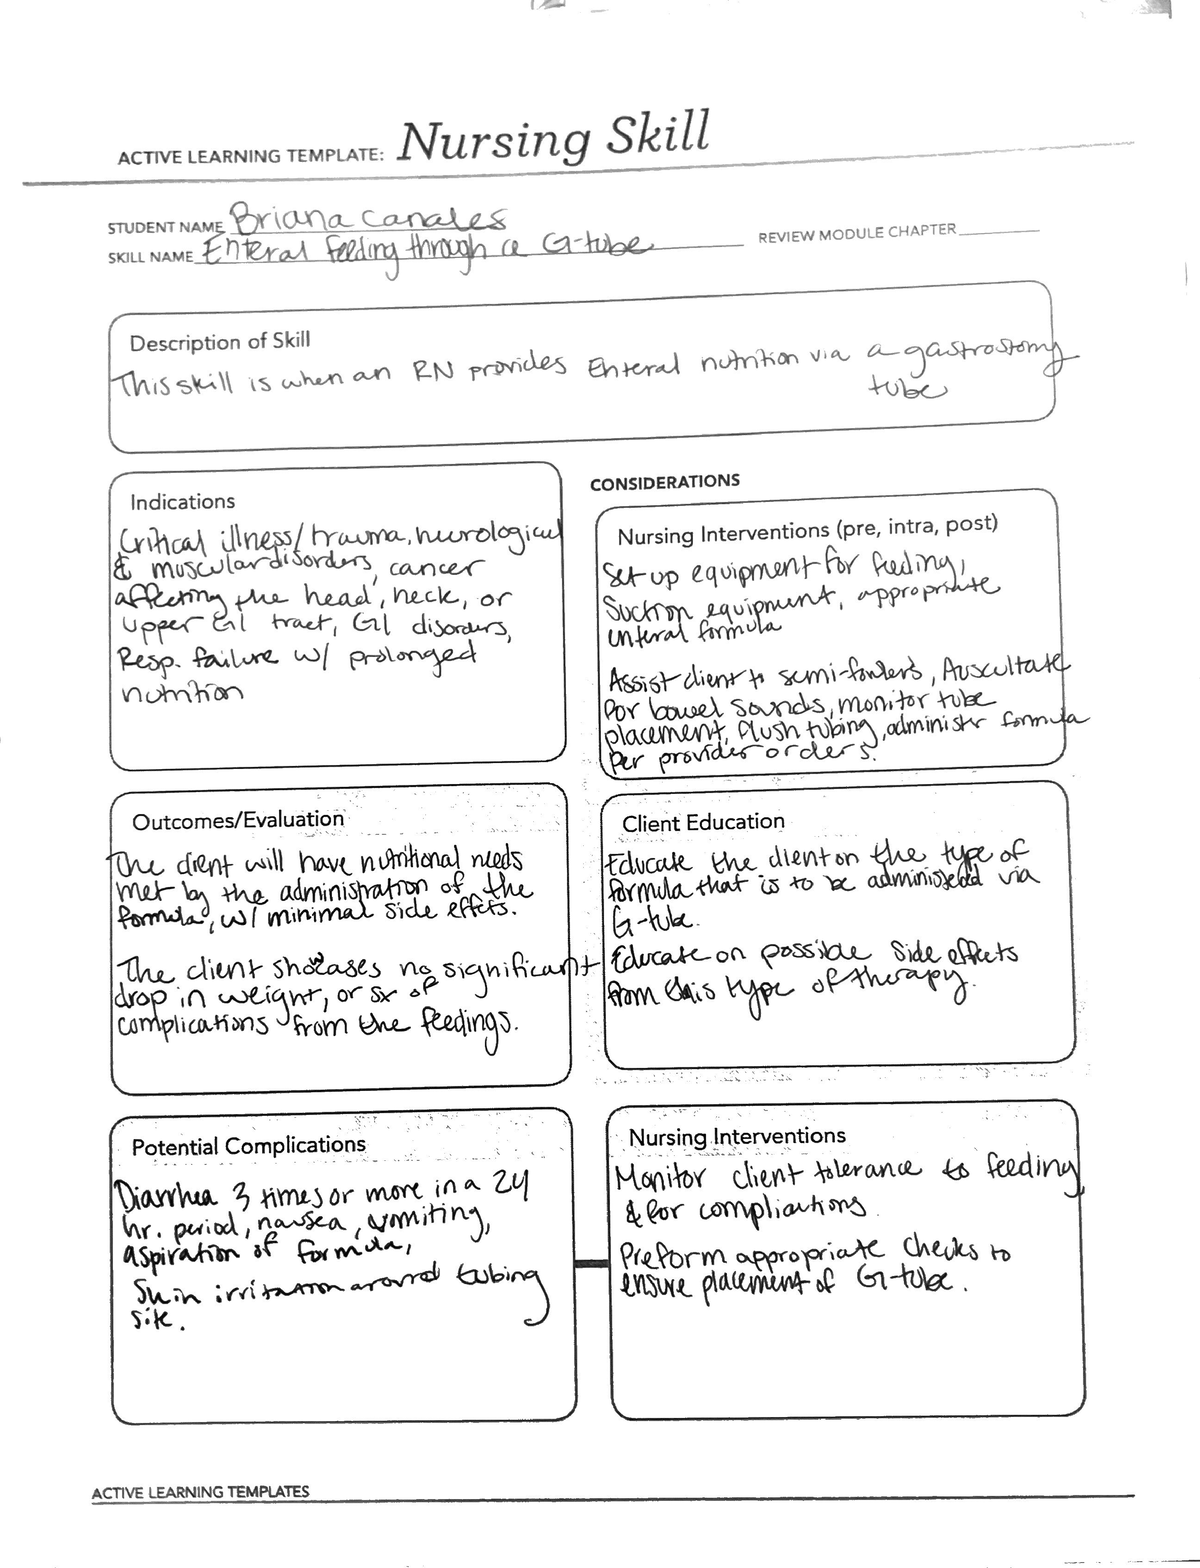 ACTIVE LEARNING TEMPLATE: Nursing Skill
STUDENT NAME Briana Canales
SKILL NAME Enteral Feeding through a G-tube
REVIEW MODULE CHAPTER
Description of Skill
This skill is when an RN provides Enteral nutrition via a gastrostomy
tube
Indications
Critical illness/trauma, neurological
& muscular disorders, cancer
affecting the head, neck, or
upper GI tract, GI disorders,
Resp. failure w/ prolonged
nutrition
CONSIDERATIONS
Nursing Interventions (pre, intra, post)
Set up equipment for feeding,
Suction equipment, appropriate
enteral formula
Assist client to semi-fowlers, Auscultate
for bowel sounds, monitor tube
placement, flush tubing, administer formula
per provider orders.
Outcomes/Evaluation
The client will have nutritional needs
met by the administration of the
formula, w/ minimal side effects.
The client showcases no significant
drop in weight, or sx of
complications from the feedings.
Client Education
Educate the client on the type of
formula that is to be administered via
G-tube.
Educate on possible side effects
from this type of therapy.
Potential Complications
Diarrhea 3 times or more in a 24
hr. period, nausea, vomiting,
aspiration of formula,
Skin irritation around tubing
site.
Nursing Interventions
Monitor client tolerance to feeding
& for complications.
Preform appropriate checks to
ensure placement of G-tube.
ACTIVE LEARNING TEMPLATES